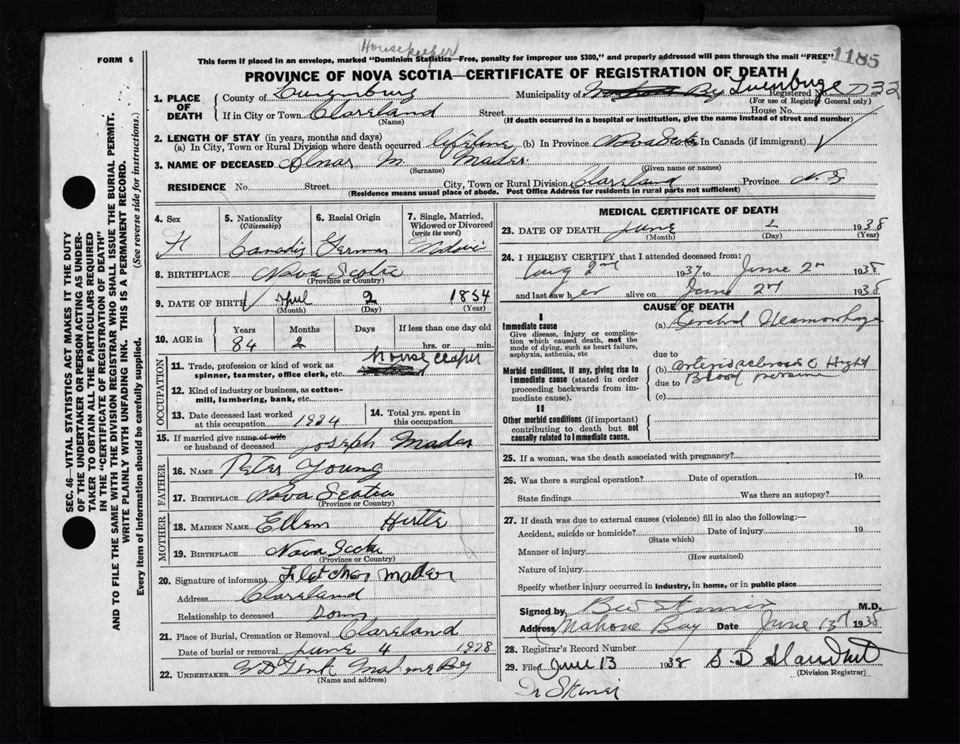 Housekeeper
FORM 6
This form if posted in an envelope, marked "Dominion Statistics—Free, penalty for improper use $300," and properly addressed will pass through the mail "FREE"
1185
PROVINCE OF NOVA SCOTIA—CERTIFICATE OF REGISTRATION OF DEATH
1. PLACE OF DEATH
County of Lunenburg Municipality of Bay Lunenburg Registered No. 732
(For use of Registrar General only)
If in City or Town Clareland Street House No.
(Name) (If death occurred in a hospital or institution, give the name instead of street and number)
2. LENGTH OF STAY (in years, months and days)
(a) In City, Town or Rural Division where death occurred lifetime (b) In Province Nova Scotia In Canada (if immigrant)
3. NAME OF DECEASED M. Mader
(Surname) (Given name or names)
RESIDENCE No. Street City, Town or Rural Division Clareland Province N.S
(Residence means usual place of abode. Post Office Address for residents in rural parts not sufficient)
4. Sex
F
5. Nationality (Citizenship)
6. Racial Origin
German
7. Single, Married, Widowed or Divorced (write the word)
8. BIRTHPLACE Nova Scotia
(Province or Country)
9. DATE OF BIRTH April 2 1854
(Month) (Day) (Year)
10. AGE in
Years Months Days If less than one day old
84 2 hrs. or min.
OCCUPATION
11. Trade, profession or kind of work as spinner, teamster, office clerk, etc. house
12. Kind of industry or business, as cotton-mill, lumbering, bank, etc.
13. Date deceased last worked at this occupation 1934
14. Total yrs. spent in this occupation
15. If married give name of wife or husband of deceased Joseph Mader
FATHER
16. NAME Peter Young
17. BIRTHPLACE Nova Scotia
(Province or Country)
MOTHER
18. MAIDEN NAME Ellen Hirtle
19. BIRTHPLACE Nova Scotia
(Province or Country)
20. Signature of informant Fletcher Mader
Address Clareland
Relationship to deceased
21. Place of Burial, Cremation or Removal Clareland
Date of burial or removal June 4 1938
22. UNDERTAKER Mahone Bay
(Name and address)
MEDICAL CERTIFICATE OF DEATH
23. DATE OF DEATH June 2 1938
(Month) (Day) (Year)
24. I HEREBY CERTIFY that I attended deceased from:
Aug 2nd 1937 to June 2nd 1938
and last saw her alive on June 2nd 1938
CAUSE OF DEATH
I
Immediate cause
Give disease, injury or complication which caused death, not the mode of dying, such as heart failure, asphyxia, asthenia, etc
(a) Cerebral
due to
Morbid conditions, if any, giving rise to immediate cause (stated in order proceeding backwards from immediate cause).
(b)
due to Blood pressure
(c)
II
Other morbid conditions (if important) contributing to death but not causally related to immediate cause.
25. If a woman, was the death associated with pregnancy?
26. Was there a surgical operation? Date of operation 19
State findings Was there an autopsy?
27. If death was due to external causes (violence) fill in also the following:—
Accident, suicide or homicide? Date of injury 19
(State which)
Manner of injury
(How sustained)
Nature of injury
Specify whether injury occurred in industry, in home, or in public place
Signed by M.D.
Address Mahone Bay Date June 13th 1938
28. Registrar's Record Number
29. Filed June 13 1938 S. D
(Division Registrar)
SEC. 46—VITAL STATISTICS ACT MAKES IT THE DUTY
OF THE UNDERTAKER OR PERSON ACTING AS UNDER-
TAKER TO OBTAIN ALL THE PARTICULARS REQUIRED
IN THE "CERTIFICATE OF REGISTRATION OF DEATH"
AND TO FILE THE SAME WITH THE DIVISION REGISTRAR WHO SHALL ISSUE THE BURIAL PERMIT.
WRITE PLAINLY WITH UNFADING INK. THIS IS A PERMANENT RECORD.
Every item of information should be carefully supplied. (See reverse side for instructions.)